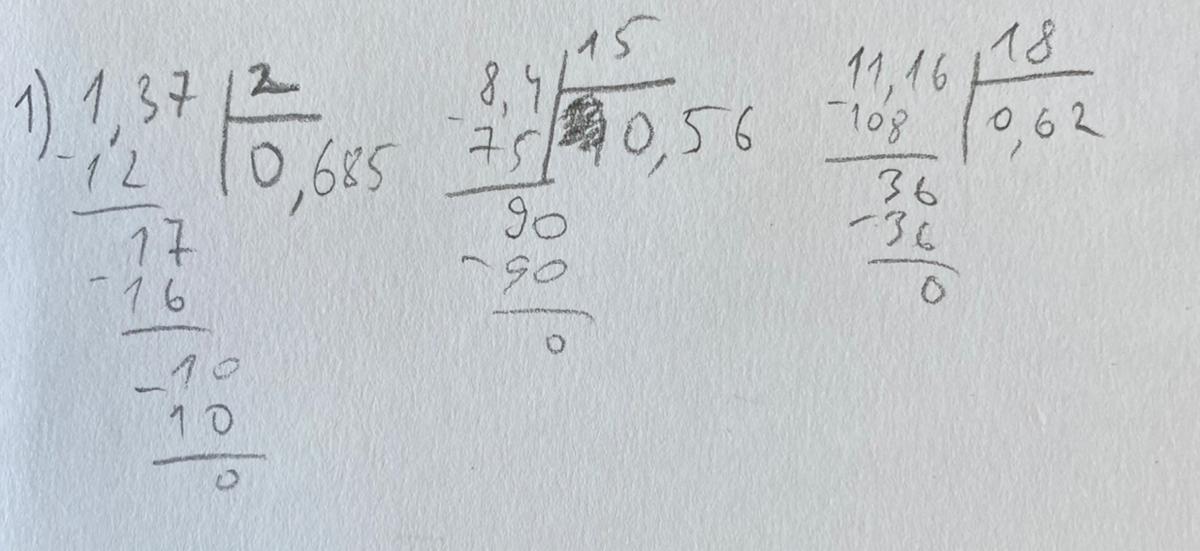 1) 1,37 2
-12 0,685
17
-16
-10
10
0
8,4 15
-75 0,56
90
-90
0
11,16 18
-108 0,62
36
-36
0